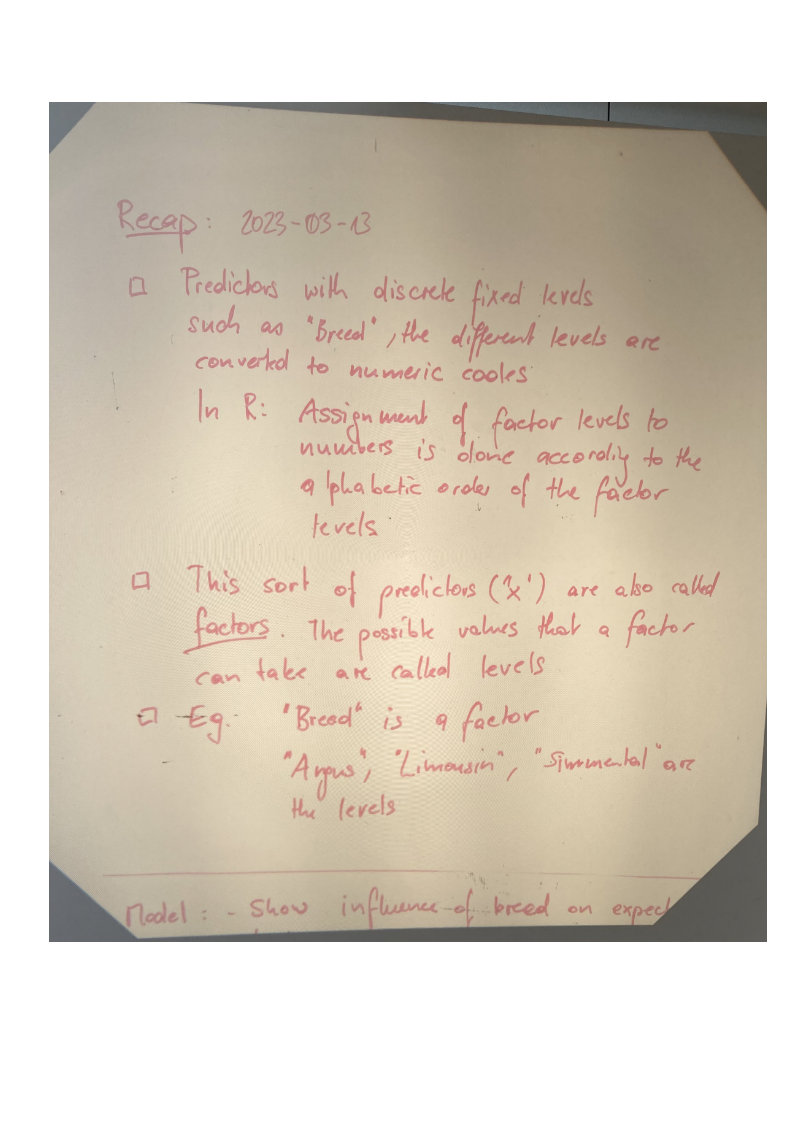 Recap: 2023-03-13
□ Predictors with discrete fixed levels
such as "Breed", the different levels are
converted to numeric codes
In R: Assignment of factor levels to
numbers is done according to the
alphabetic order of the factor
levels.
□ This sort of predictors ('x') are also called
factors. The possible values that a factor
can take are called levels
□ Eg. "Breed" is a factor
"Angus", "Limousin", "Simmental" are
the levels
Model: - Show influence of breed on expect